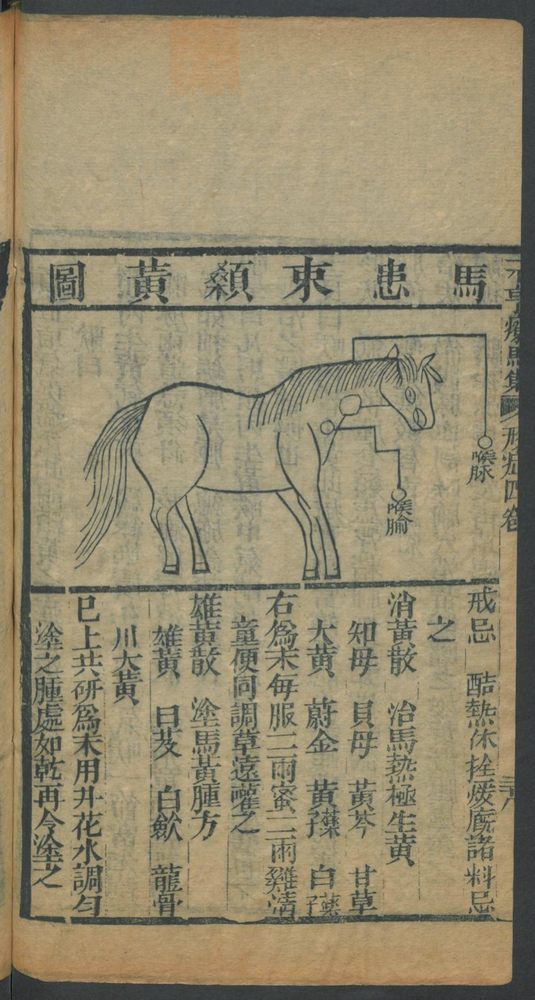 馬患束顙黃圖
療馬集
形症四卷
喉脉
喉腧
戒忌　酷熱休拴煖廐諸料忌
之
消黃散　治馬熱極生黃
知母　貝母　黃芩　甘草
大黃　蔚金　黃蘗　白蘗
右爲末每服二兩蜜二兩雞清
童便同調草遠嚾之
雄黃散　塗馬黃腫方
雄黃　白芨　白歛　龍骨
川大黃
已上共研爲末用井花水調勻
塗之腫處如乾再令塗之